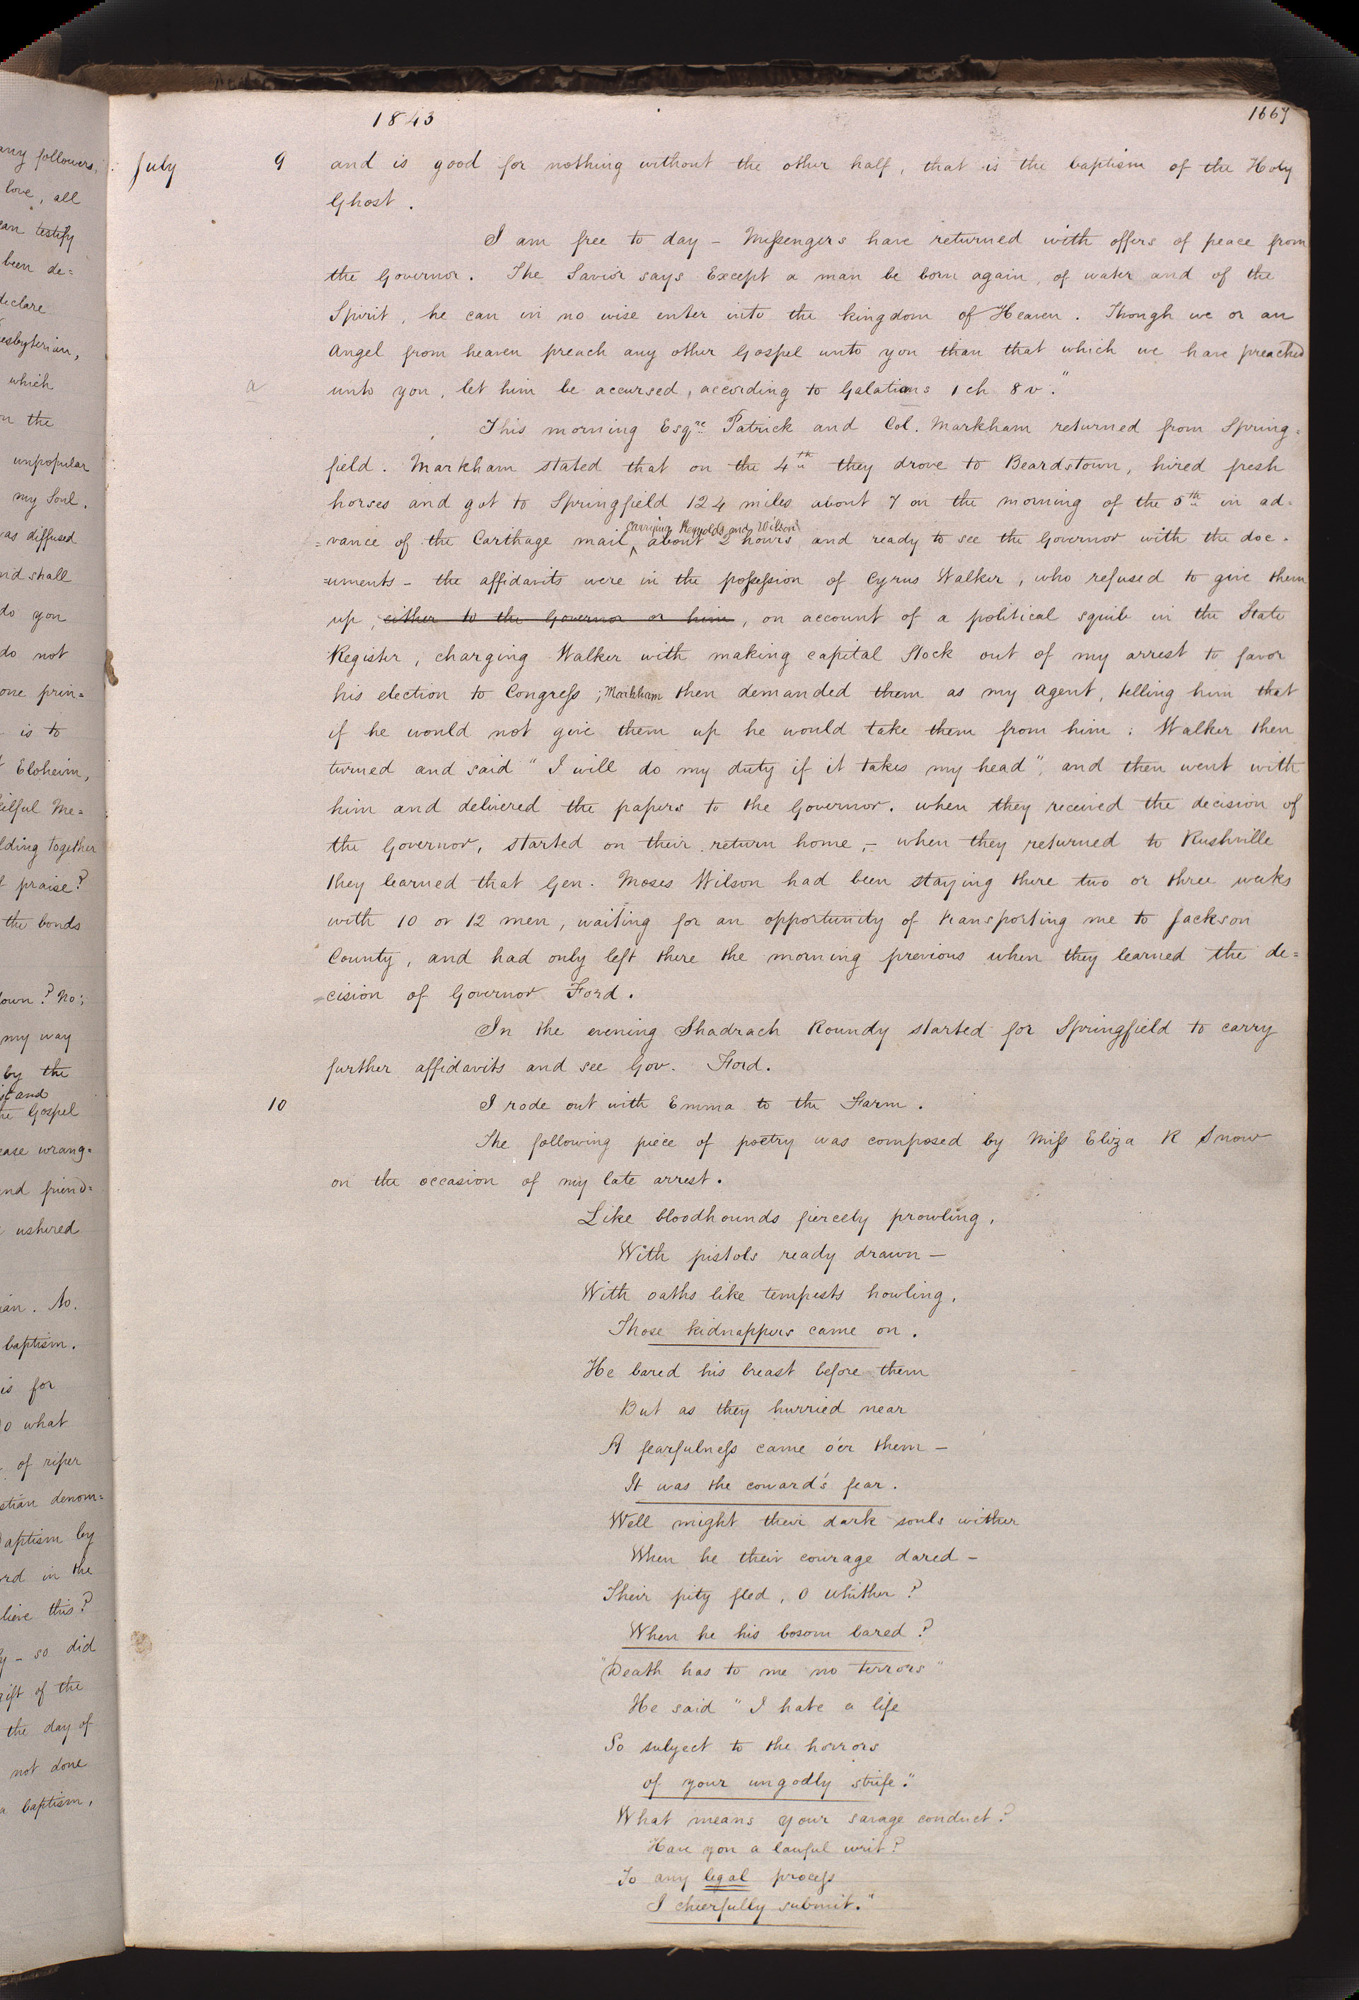 any followers,
love, all
ean testify
been de=
declare
esbyterian,
which
on the
unpopular
my Soul.
as diffused
nd shall
do you
do not
one prin=
is to
Eloheim,
kilful Me=
lding together
praise?
the bonds
own? No;
my way
by the
and
the Gospel
ease wrang=
and friend=
ushered
ian. No.
baptism.
is for
o what
of riper
stian denom=
Baptism by
ord in the
lieve this?
y - so did
gift of the
the day of
not done
a baptism,
1843 1667
July 9 and is good for nothing without the other half, that is the baptism of the Holy
Ghost.
I am free to day - Messengers have returned with offers of peace from
the Governor. The Savior says Except a man be born again, of water and of the
Spirit, he can in no wise enter into the kingdom of Heaven. Though we or an
Angel from heaven preach any other Gospel unto you than that which we have preached
unto you, let him be accursed, according to Galatians 1 ch 8 v."
This morning Esqre. Patrick and Col. Markham returned from Spring=
field. Markham stated that on the 4th they drove to Beardstown, hired fresh
horses and got to Springfield 124 miles about 7 on the morning of the 5th in ad=
carrying Reynolds and Wilson
=vance of the Carthage mail ^ about 2 hours and ready to see the Governor with the doc=
=uments - the affidavits were in the possession of Cyrus Walker, who refused to give them
up, either to the Governor or him, on account of a political squib in the State
Register, charging Walker with making capital Stock out of my arrest to favor
his election to Congress; Markham then demanded them as my Agent, telling him that
if he would not give them up he would take them from him: Walker then
turned and said "I will do my duty if it takes my head", and then went with
him and delivered the papers to the Governor. when they received the decision of
the Governor, started on their return home, - when they returned to Rushville
they learned that Gen. Moses Wilson had been staying there two or three weeks
with 10 or 12 men, waiting for an opportunity of transporting me to Jackson
County, and had only left there the morning previous when they learned the de=
=cision of Governor Ford.
In the evening Shadrach Roundy started for Springfield to carry
further affidavits and see Gov. Ford.
10 I rode out with Emma to the Farm.
The following piece of poetry was composed by Miss Eliza R Snow
on the occasion of my late arrest.
Like bloodhounds fiercely prowling,
With pistols ready drawn -
With oaths like tempests howling,
Those kidnappers came on.
He bared his breast before them
But as they hurried near
A fearfulness came o'er them -
It was the coward's fear.
Well might their dark souls wither
When he their courage dared -
Their pity fled, O whither?
When he his bosom bared?
"Death has to me no terrors"
He said "I hate a life
So subject to the horrors
of your ungodly strife."
What means your savage conduct?
Have you a lawful writ?
To any legal process
I cheerfully submit."